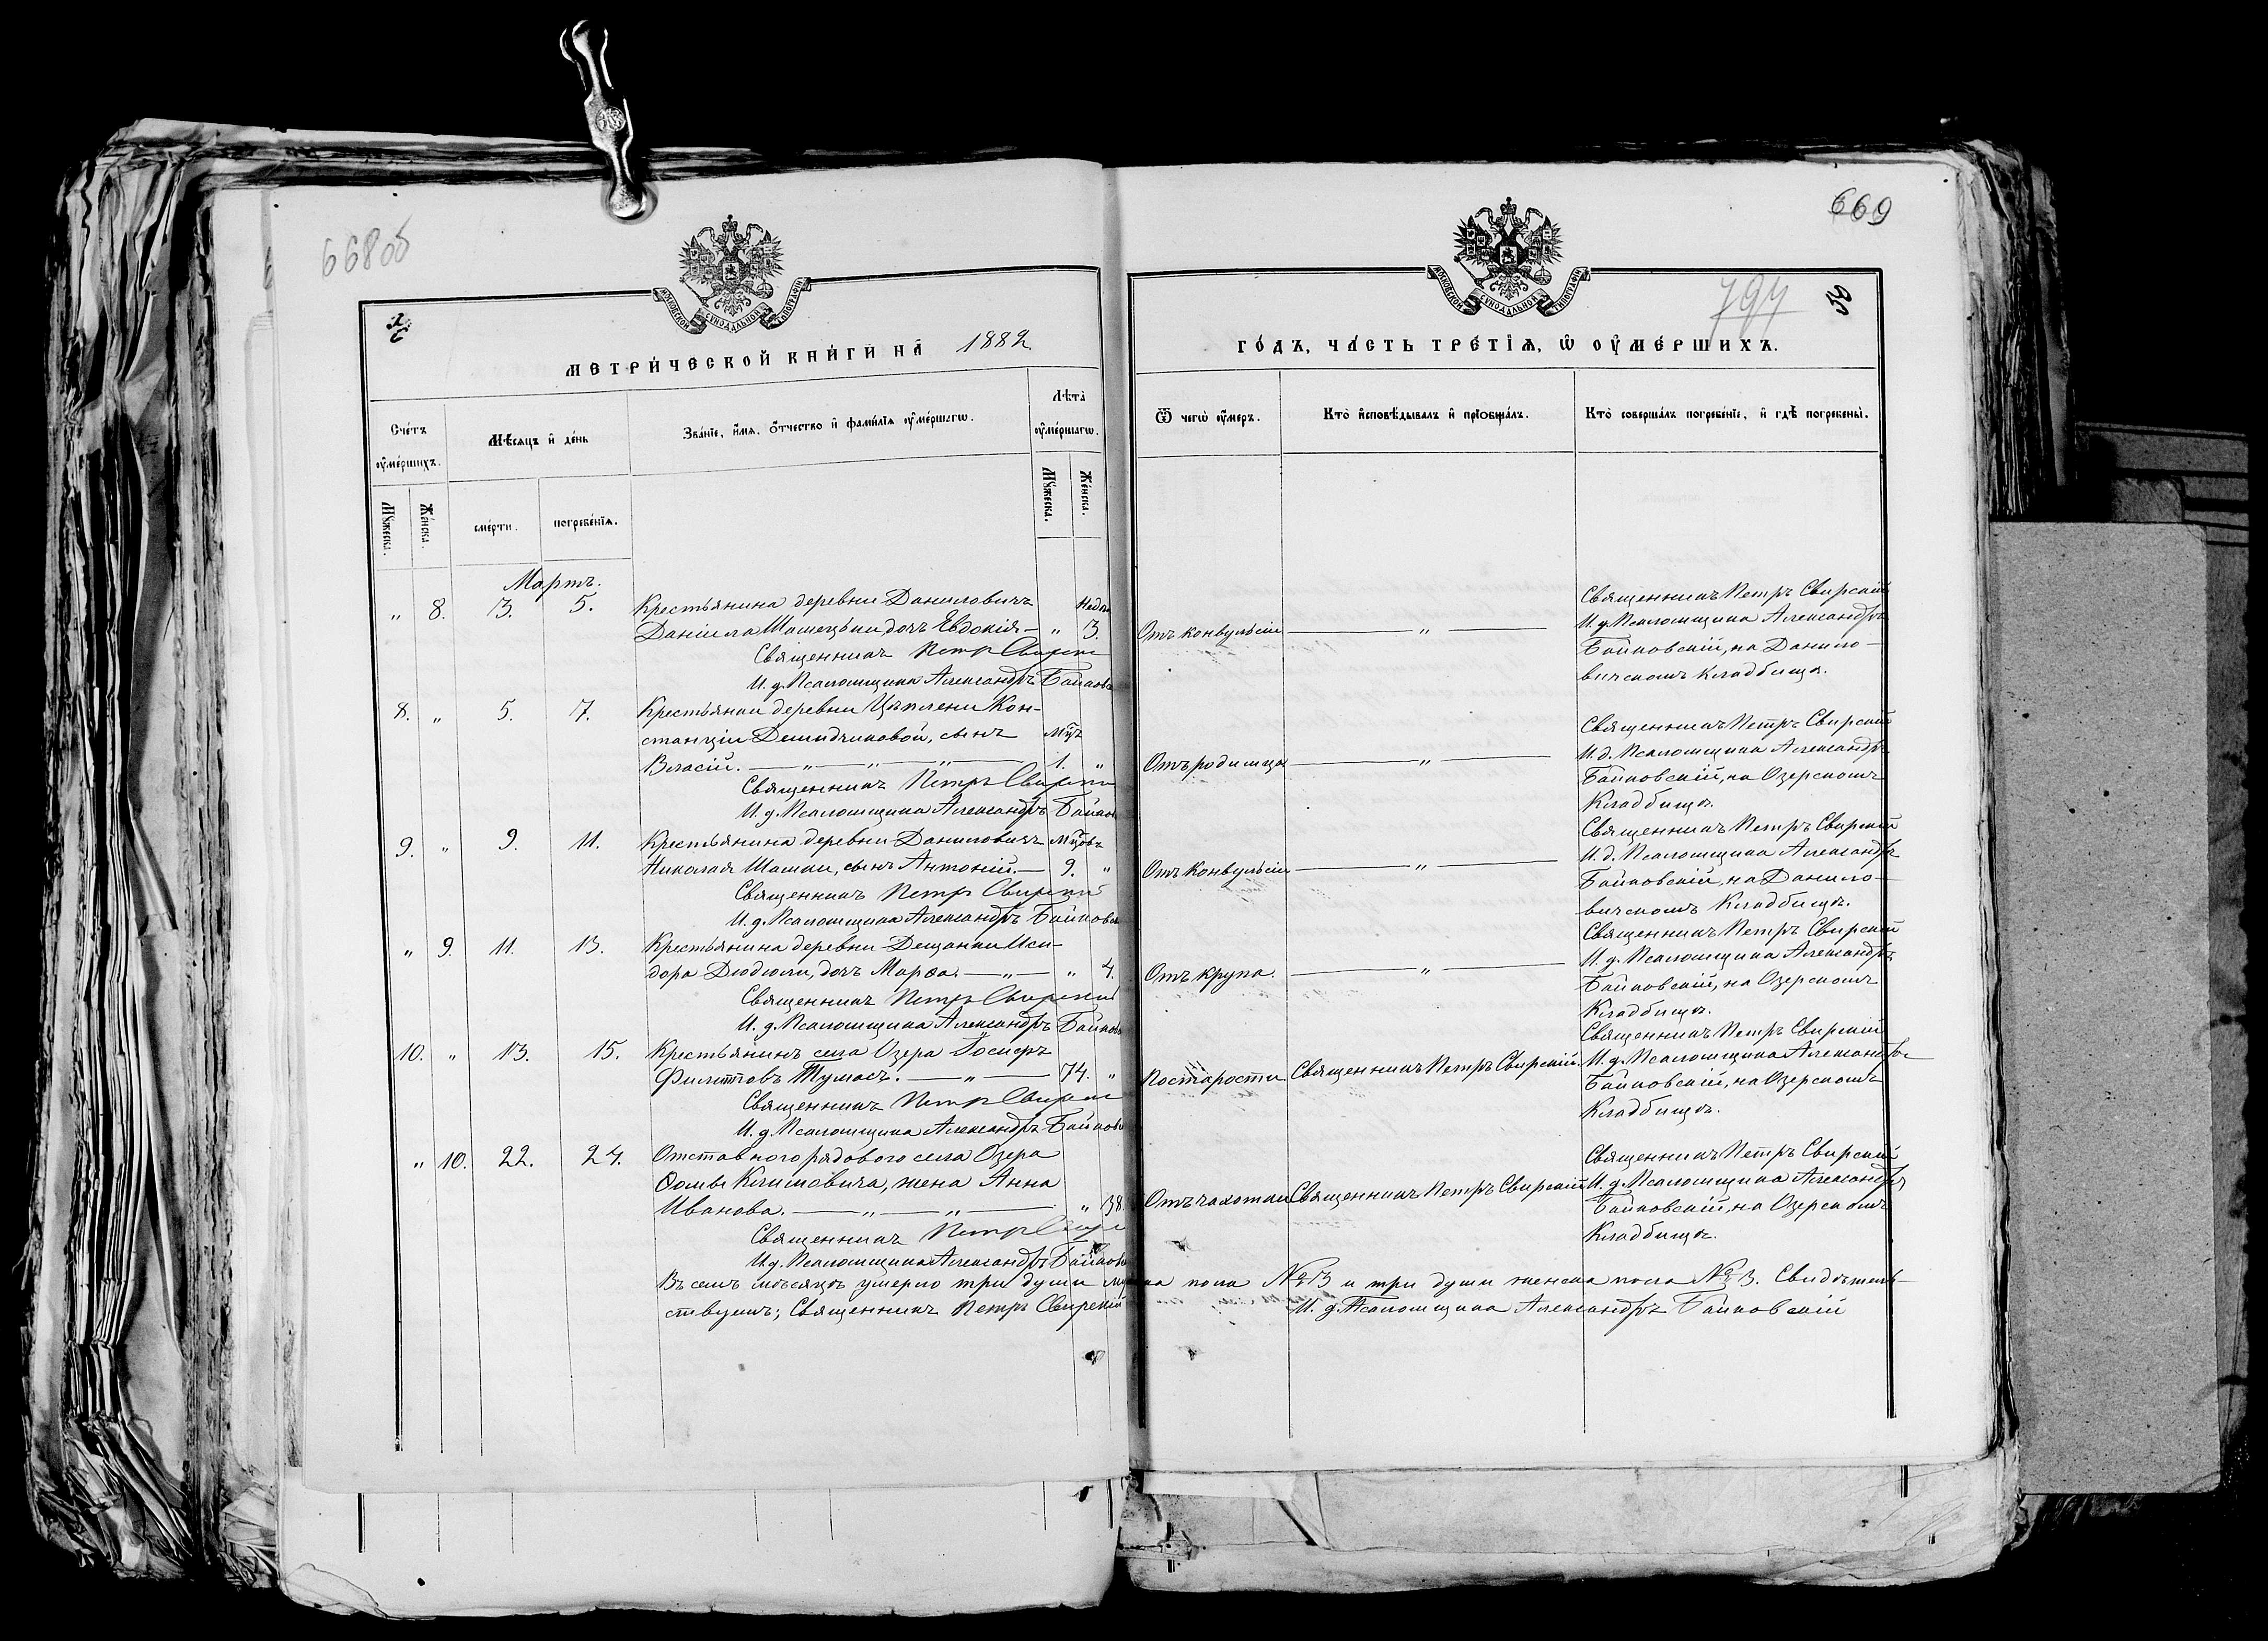 668об
669
794
МОСКОВСКОЙ СѴНОДАЛЬНОЙ ТИПОГРАФІИ
МЕТРИЧЕСКОЙ КНИГИ НА 1882
Счетъ оумершихъ.
Мѣсяцъ и день
Званіе, имя, отчество и фамилія оумершагѡ.
Лѣта оумершагѡ.
Мужеска.
Женска.
смерти.
погребенія.
Мужеска.
Женска.
Мартъ.
„ 8. 3. 5. Крестьянина деревни Даниловичъ Недѣ
Даніила Шешецки дочь Евдокія — „ 3.
Священникъ Петръ Свирскі
И. д. Псаломщика Александръ Байковс
8. „ 5. 7. Крестьянки деревни Цѣплени Кон-
станціи Демидчиковой, сынъ Мцъ
Власій. — „ — „ — „ — 1. „
Священникъ Петръ Свирскі
И. д. Псаломщика Александръ Байков
9. „ 9. 11. Крестьянина деревни Даниловичъ Мцовъ
Николая Шашки, сынъ Антоній. — 9. „
Священникъ Петръ Свирскій
И. д. Псаломщика Александръ Байковс
„ 9. 11. 13. Крестьянина деревни Дещанки Иси-
дора Дюдюли, дочь Марѳа. — „ — „ 4.
Священникъ Петръ Свирскій
И. д. Псаломщика Александръ Байков
10. „ 13. 15. Крестьянинъ села Озера Іосифъ
Филиповъ Тумасъ. — „ — 74. „
Священникъ Петръ Свирскі
И. д. Псаломщика Александръ Байков
„ 10. 22. 24. Отставного рядового села Озера
Ѳомы Климовича, жена Анна
Иванова. — „ — „ — „ 38.
Священникъ Петръ Свирс
И. д. Псаломщика Александръ Байков
МОСКОВСКОЙ СѴНОДАЛЬНОЙ ТИПОГРАФІИ
ГОДЪ, ЧАСТЬ ТРЕТІЯ, Ѡ ОУМЕРШИХЪ.
Ѿ чегѡ оумеръ.
Кто исповѣдывалъ и пріобщалъ.
Кто совершалъ погребеніе, и гдѣ погребены.
Священникъ Петръ Свирскій
И. д. Псаломщика Александръ
Отъ конвульсіи — „ —
Байковскій, на Данило-
вичскомъ кладбищѣ.
Священникъ Петръ Свирскій
И. д. Псаломщика Александръ
Отъ родимца — „ —
Байковскій, на Озерскомъ
Кладбищѣ.
Священникъ Петръ Свирскій
И. д. Псаломщика Александръ
Отъ конвульсіи — „ —
Байковскій, на Данило-
вичскомъ Кладбищѣ.
Священникъ Петръ Свирскій
И. д. Псаломщика Александръ
Отъ крупа. — „ —
Байковскій, на Озерскомъ
Кладбищѣ.
Священникъ Петръ Свирскій
По старости Священникъ Петръ Свирскій. И. д. Псаломщика Александръ
Байковскій, на Озерскомъ
Кладбищѣ.
Священникъ Петръ Свирскій
Отъ чахотки Священникъ Петръ Свирскій И. д. Псаломщика Александръ
Байковскій, на Озерскомъ
Кладбищѣ.
Въ семъ мѣсяцѣ умерло три души мужска пола № 3 и три души женска пола № 3. Свидѣтель-
ствуемъ; Священникъ Петръ Свирскій И. д. Псаломщика Александръ Байковскій